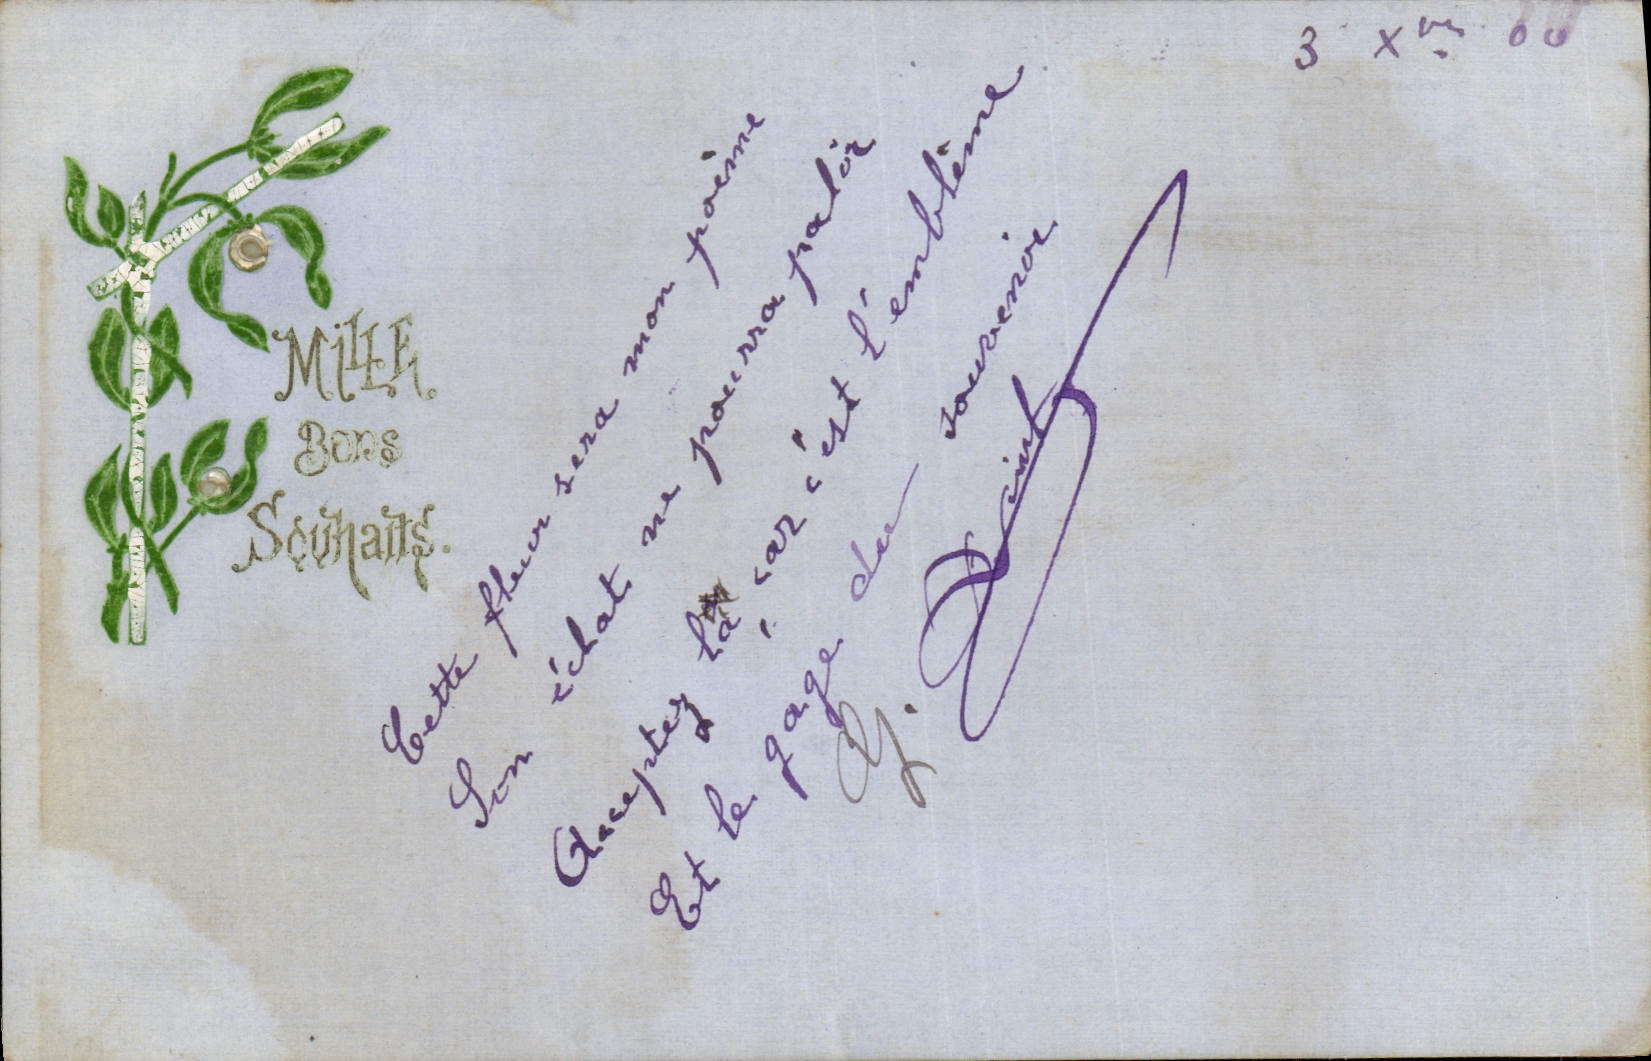 3 Xbre
MILLE
BONS
Souhaits.
Cette fleur sera mon poème
Son éclat ne pourra palir
Acceptez la car c'est l'emblème
Et le gage du souvenir